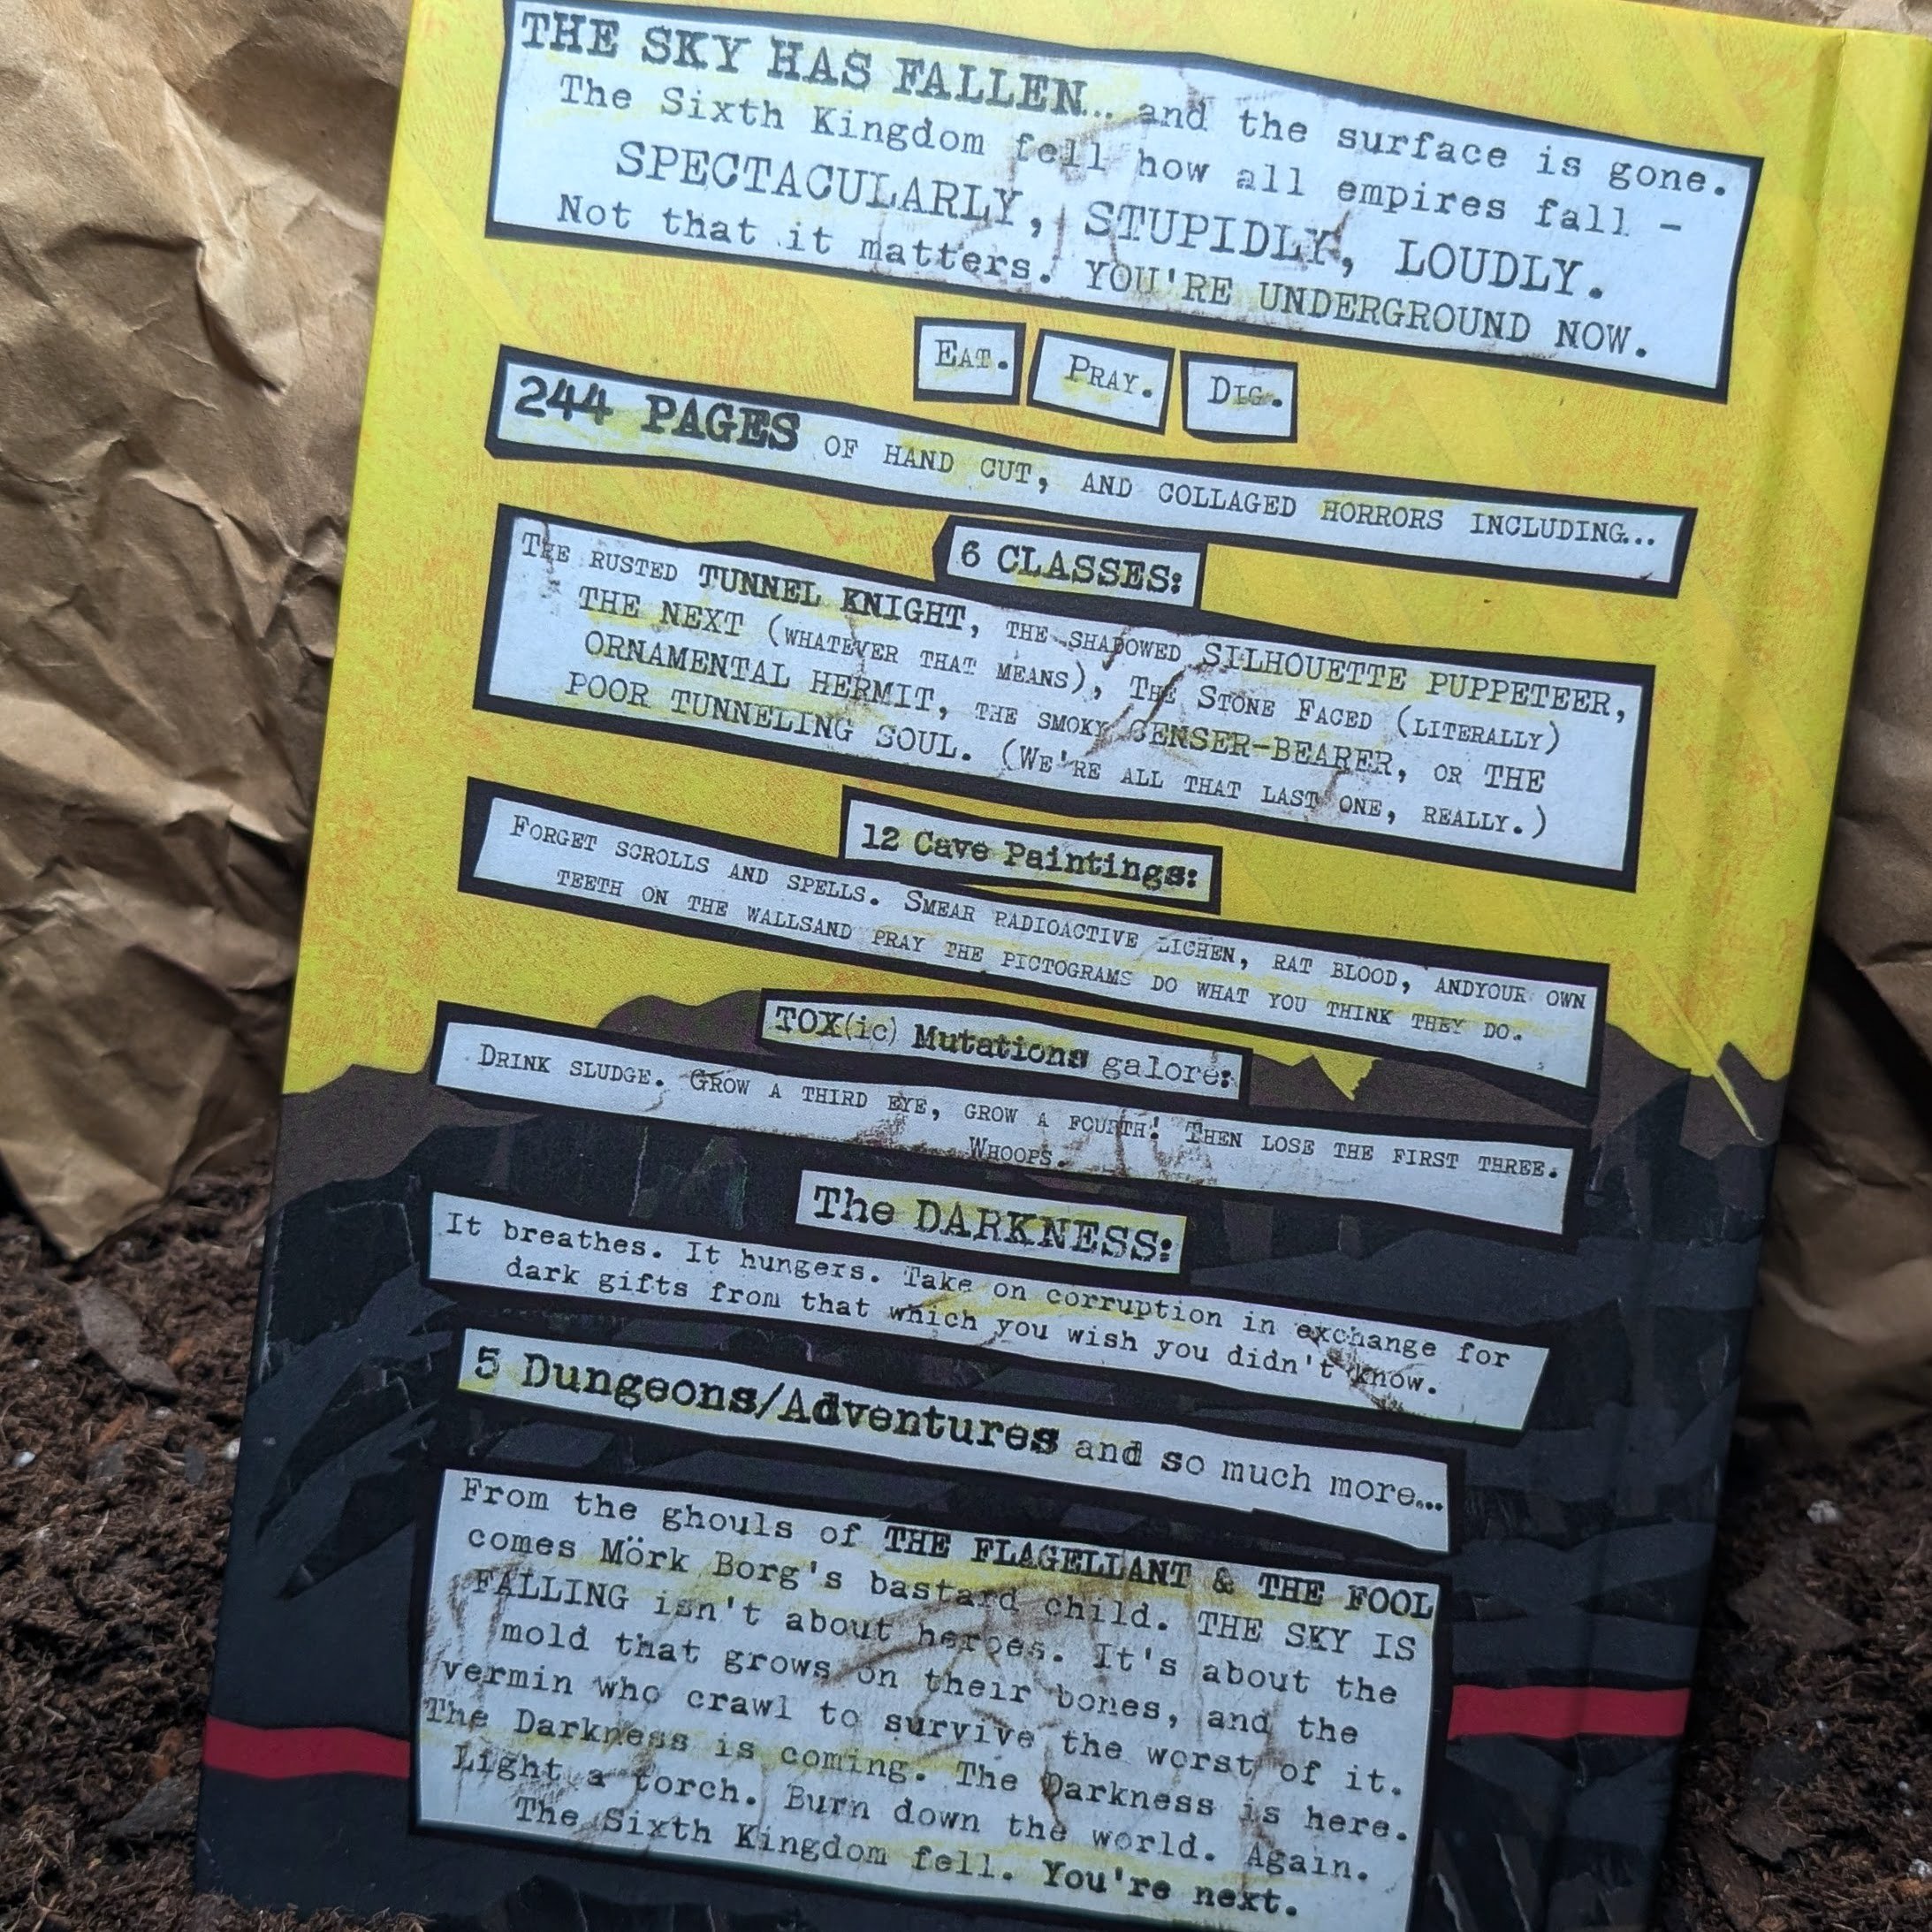 THE SKY HAS FALLEN... and the surface is gone.
The Sixth Kingdom fell how all empires fall -
SPECTACULARLY, STUPIDLY, LOUDLY.
Not that it matters. YOU'RE UNDERGROUND NOW.
EAT. PRAY. DIG.
244 PAGES OF HAND CUT, AND COLLAGED HORRORS INCLUDING...
6 CLASSES:
THE RUSTED TUNNEL KNIGHT, THE SHADOWED SILHOUETTE PUPPETEER,
THE NEXT (WHATEVER THAT MEANS), THE STONE FACED (LITERALLY)
ORNAMENTAL HERMIT, THE SMOKY CENSER-BEARER, OR THE
POOR TUNNELING SOUL. (WE'RE ALL THAT LAST ONE, REALLY.)
12 Cave Paintings:
FORGET SCROLLS AND SPELLS. SMEAR RADIOACTIVE LICHEN, RAT BLOOD, ANDYOUR OWN
TEETH ON THE WALLSAND PRAY THE PICTOGRAMS DO WHAT YOU THINK THEY DO.
TOX(ic) Mutations galore:
DRINK SLUDGE. GROW A THIRD EYE, GROW A FOURTH! THEN LOSE THE FIRST THREE.
WHOOPS.
The DARKNESS:
It breathes. It hungers. Take on corruption in exchange for
dark gifts from that which you wish you didn't know.
5 Dungeons/Adventures and so much more...
From the ghouls of THE FLAGELLANT & THE FOOL
comes Mörk Borg's bastard child. THE SKY IS
FALLING isn't about heroes. It's about the
mold that grows on their bones, and the
vermin who crawl to survive the worst of it.
The Darkness is coming. The Darkness is here.
Light a torch. Burn down the world. Again.
The Sixth Kingdom fell. You're next.